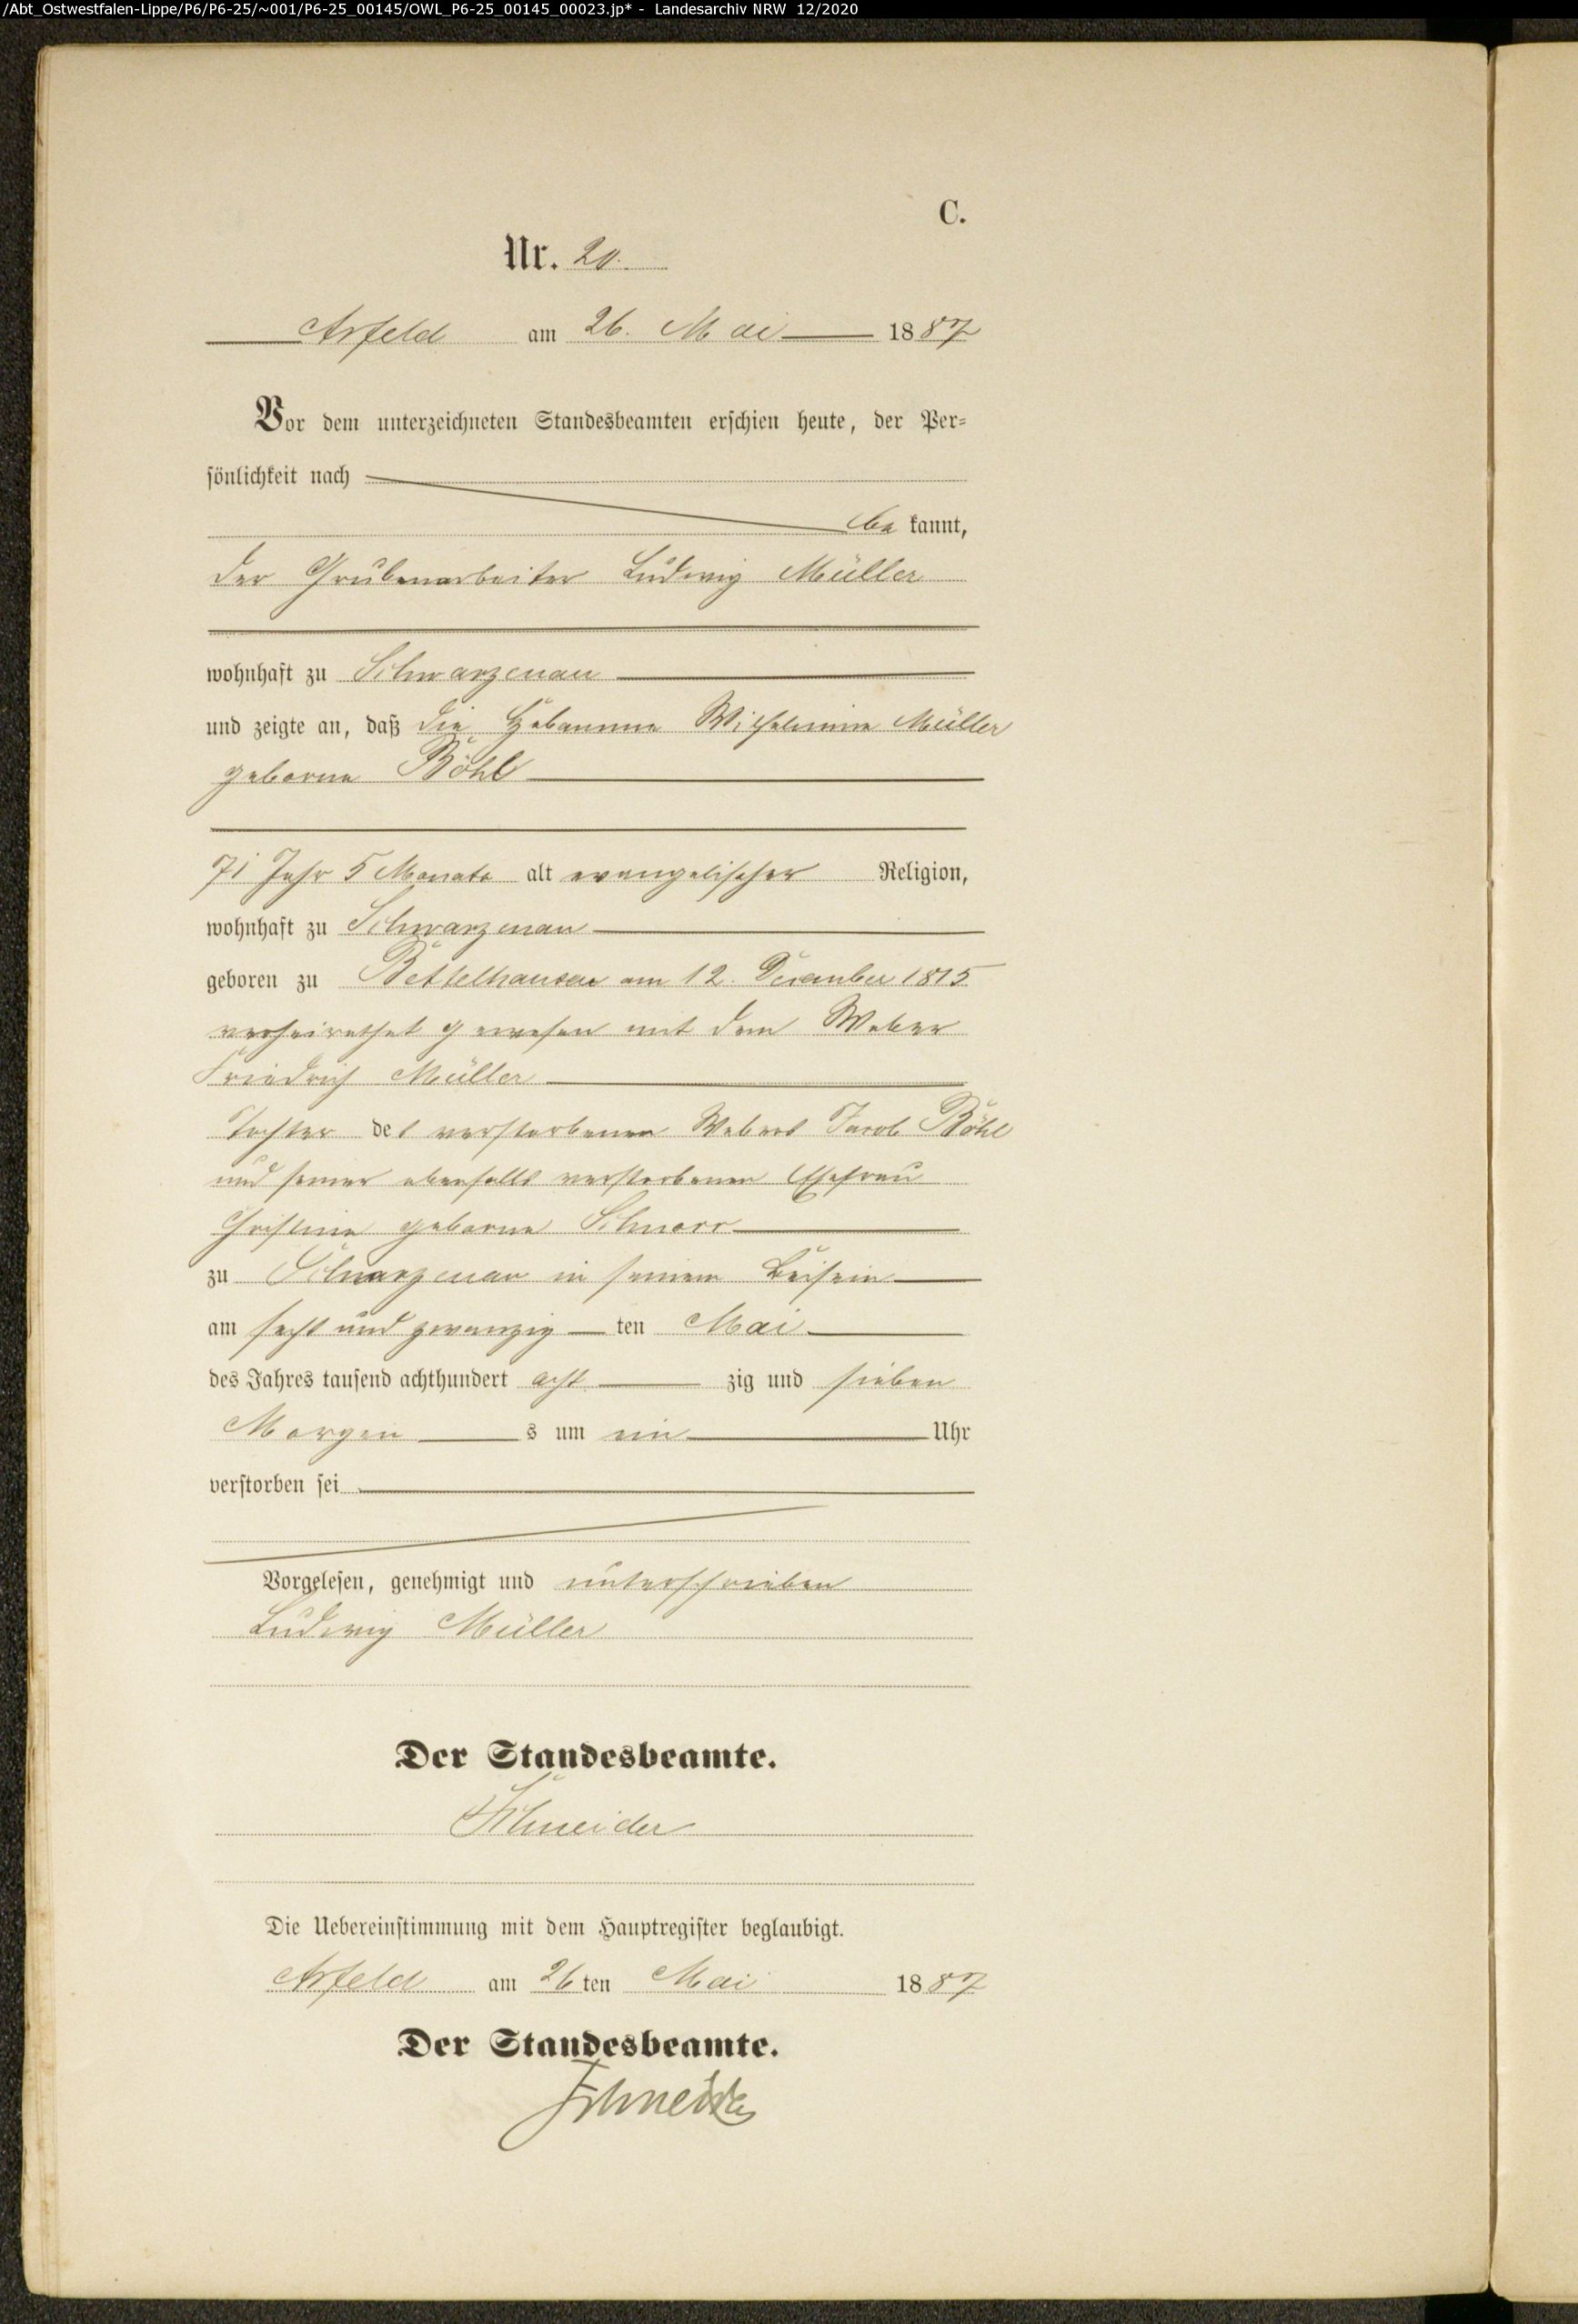 /Abt_Ostwestfalen-Lippe/P6/P6-25/~001/P6-25_00145/OWL_P6-25_00145_00023.jp* - Landesarchiv NRW 12/2020
C.
Nr. 20.
Arfeld am 26. Mai 1887
Vor dem unterzeichneten Standesbeamten erschien heute, der Per-
sönlichkeit nach
be kannt,
der Grubenarbeiter Ludwig Müller
wohnhaft zu Schwarzenau
und zeigte an, daß die Hebamme Wilhelmine Müller
geborne Böhl
71 Jahr 5 Monate alt evangelischer Religion,
wohnhaft zu Schwarzenau
geboren zu Bettelhausen am 12. December 1815
verheirathet gewesen mit dem Weber
Friedrich Müller
Tochter des verstorbenen Webers Jacob Böhl
und seiner ebenfalls verstorbenen Ehefrau
Christine geborne Schnorr
zu Schwarzenau in seinem Beisein
am sechs und zwanzig ten Mai
des Jahres tausend achthundert acht zig und sieben
Morgen s um ein Uhr
verstorben sei
Vorgelesen, genehmigt und unterschrieben
Ludwig Müller
Der Standesbeamte.
Schneider
Die Uebereinstimmung mit dem Hauptregister beglaubigt.
Arfeld am 26 ten Mai 1887
Der Standesbeamte.
Schneider